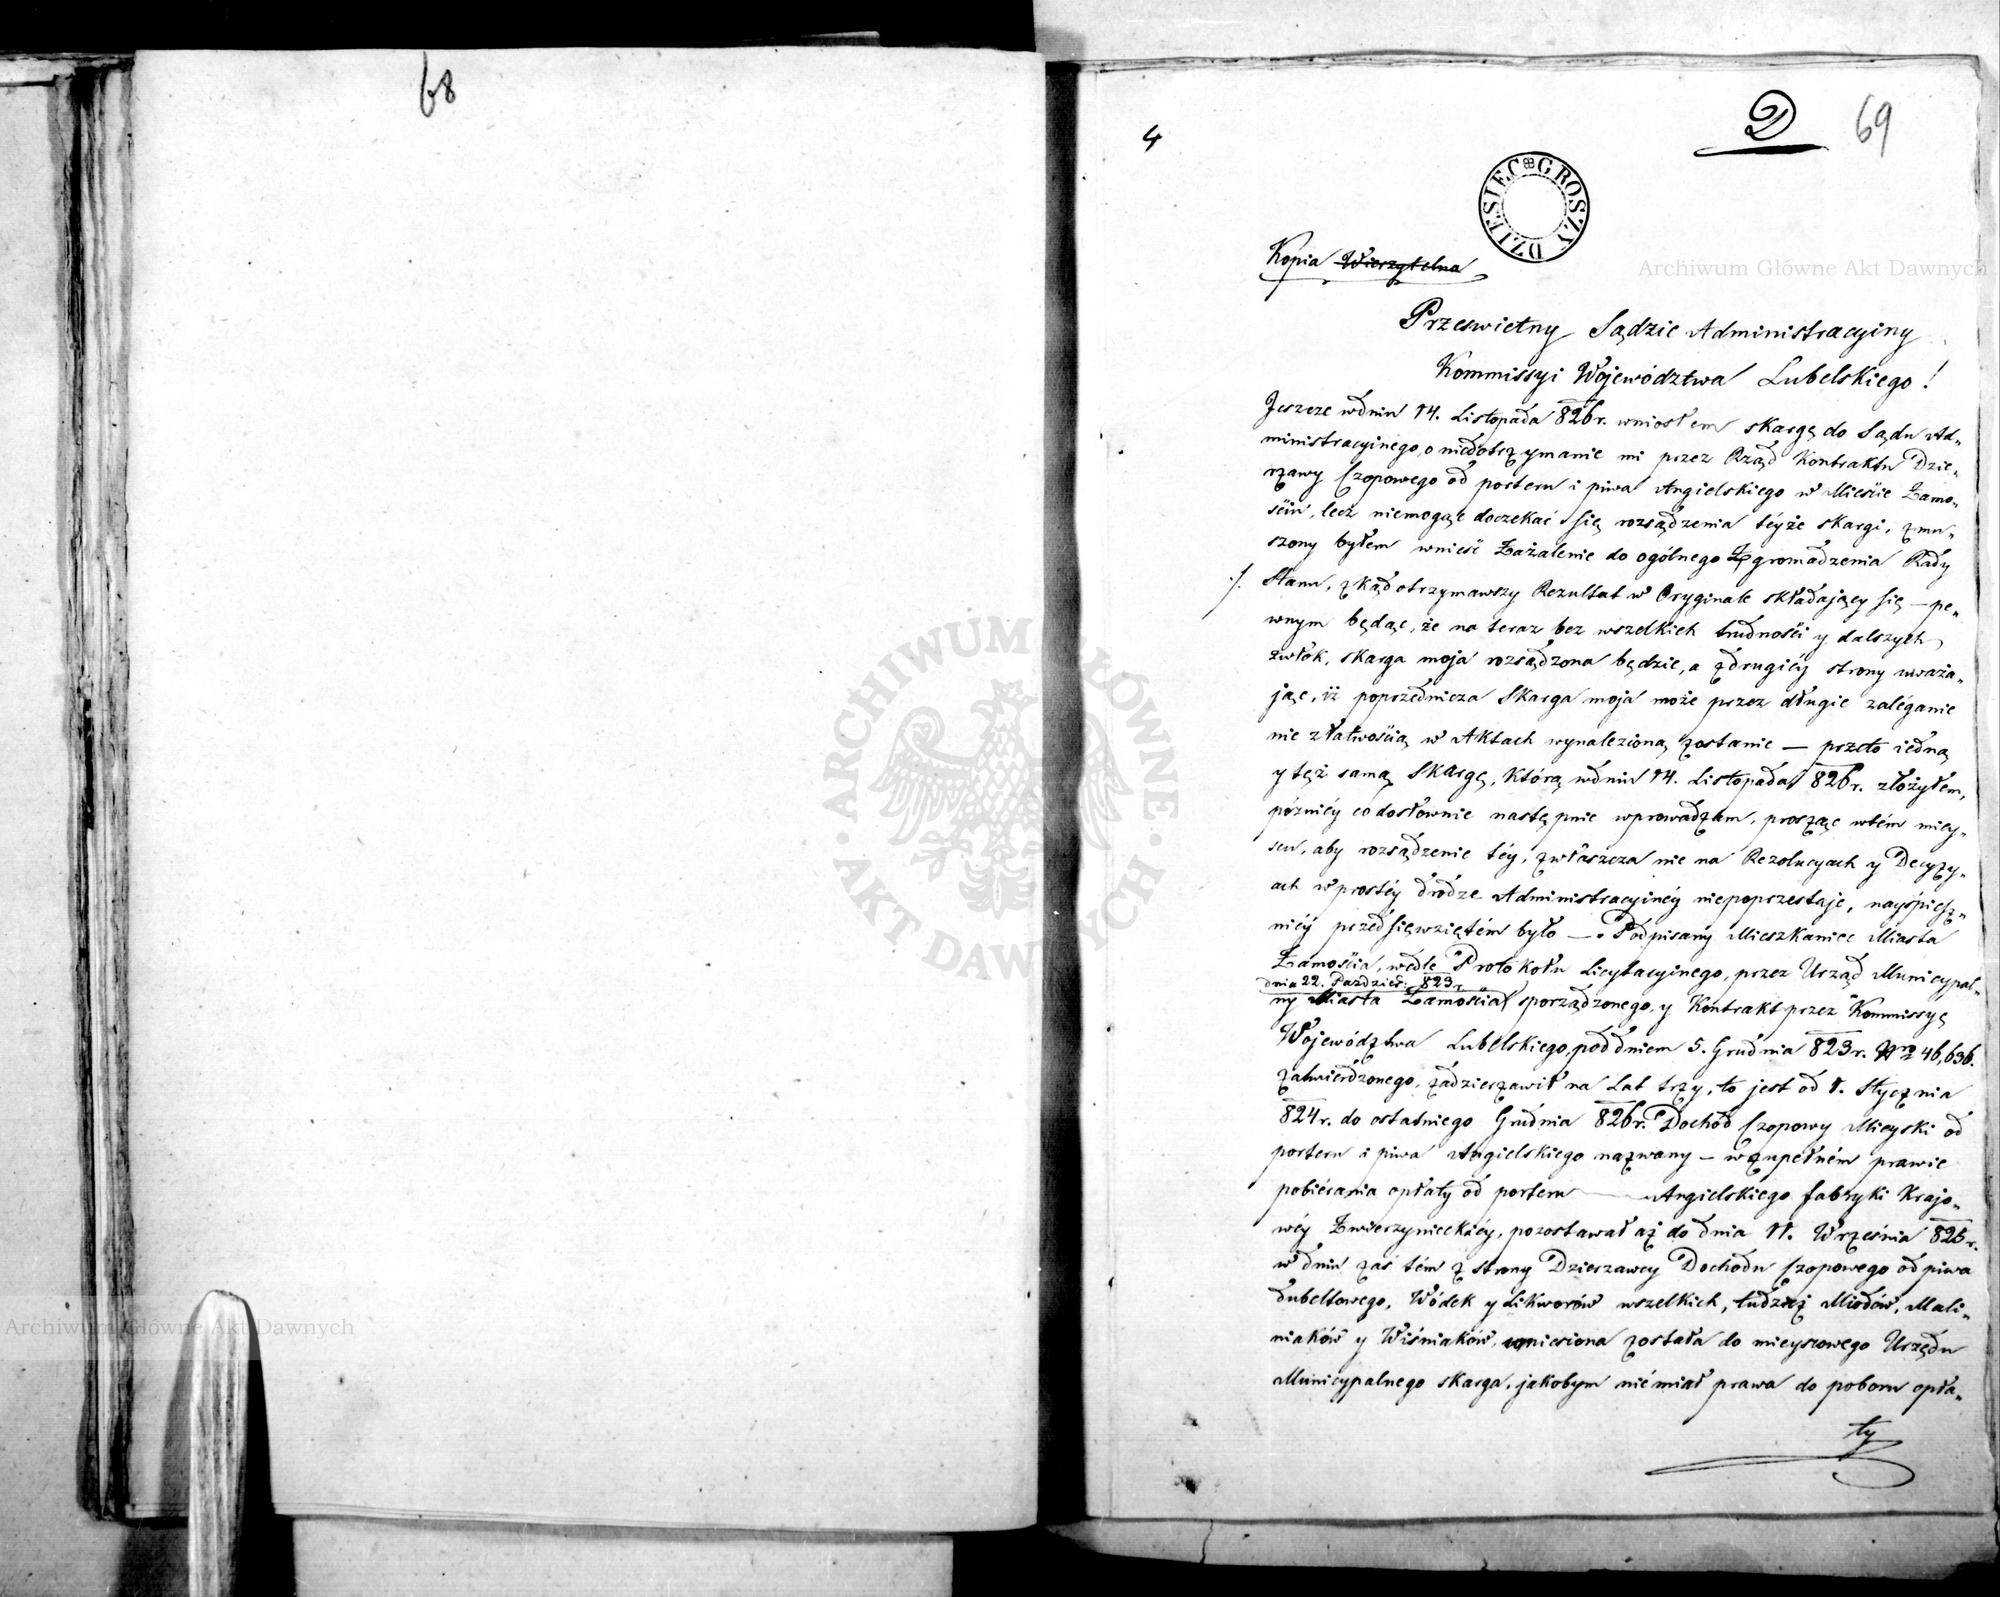 68
4
D
69
DZIESIĘC GROSZY
Kopia Wierzytelna
Archiwum Główne Akt Dawnych
Przeswietny Sądzie Administracyiny
Kommissyi Województwa Lubelskiego!
Jeszcze wdniu 14. Listopada 826r. wniosłem skargę do Sądu Ad„
ministracyinego, o niedotrzymanie mi przez Rząd Kontraktu Dzie„
rzawy Czopowego od porteru i piwa Angielskiego w Mieście Zamo„
ściu, lecz niemogąc doczekać się rozsądzenia téyże skargi, zmu„
szony byłem wnieść Zażalenie do ogólnego Zgromadzenia Rady
./. Stanu, zkąd otrzymawszy Rezultat w Oryginale składający się — pe„
wnym będąc, że na teraz bez wszelkich trudności y dalszych
zwłok, skarga moja rozsądzona będzie, a zdrugiéy strony uważa„
jąc, iż poprzednicza Skarga moja może przez długie zaléganie
nie złatwością w Aktach wynalezioną zostanie — przeto iedną
y tęż samą Skargę, którą wdniu 14. Listopada 826r. złożyłem,
późniéy co dosłownie następnie wprowadzam, prosząc wtém miey„
scu, aby rozsądzenie téy, zwłaszcza nie na Rezolucyach y Decyzy„
ach w prostéy drodze Administracyinéy niepoprzestaje, nayśpiesz„
niéy przedsięwziętém było —. Podpisany Mieszkaniec Miasta
Zamościa, wedle Protokołu Licytacyinego, przez Urząd Municypal„
dnia 22. Paździer: 823r.
ny Miasta Zamościa sporządzonego, y Kontrakt przez Kommissyę
Województwa Lubelskiego, pod dniem 5. Grudnia 823r. Nro 46,636.
zatwierdzonego, zadzierzawił na Lat trzy, to jest od 1. Stycznia
824r. do ostatniego Grudnia 826r. Dochód Czopowy Mieyski od
porteru i piwa Angielskiego nazwany — w zupełném prawie
pobiérania opłaty od porteru — Angielskiego fabryki Krajo„
wéy Zwierzynieckiéy, pozostawał aż do dnia 11. Września 826r.
w dniu zaś tém z strony Dzierzawcy Dochodu Czopowego od piwa
dubeltowego, Wódek y Likworów wszelkich, tudzież Miodów, Mali„
niaków y Wiśniaków, wniesiona została do mieyscowego Urzędu
Municypalnego skarga, jakobym niémiał prawa do poboru opła„
ty
ARCHIWUM GŁÓWNE AKT DAWNYCH
Archiwum Główne Akt Dawnych